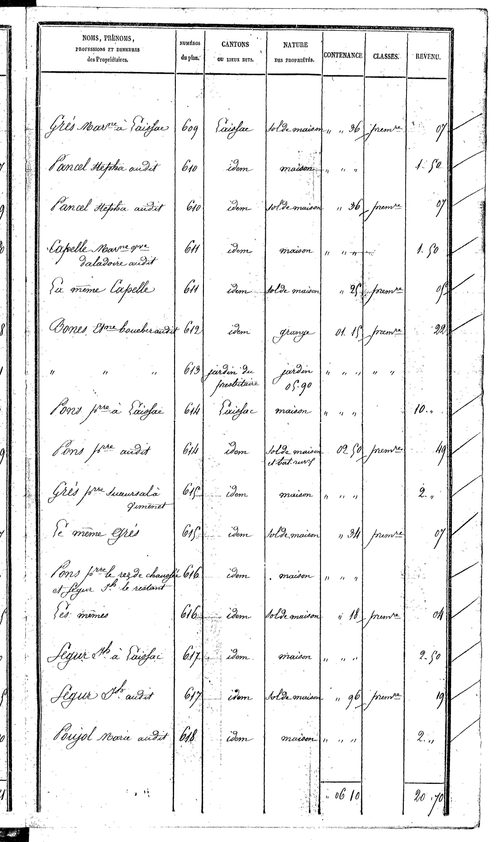 NOMS, PRÉNOMS, PROFESSIONS ET DEMEURES des Propriétaires. | NUMÉROS du plan. | CANTONS OU LIEUX DITS. | NATURE DES PROPRIÉTÉS. | CONTENANCE | CLASSES. | REVENU.
Grés Mar^ne à Laissac 609 Laissac sol de maison " " 36 prem^re 07
Pancel Hephia audit 610 idem maison " " " 1. 50
Pancel Hephia audit 610 idem sol de maison " 36 prem^re 07
Capelle Mar^ne v^ve 611 idem maison " " " 1. 50
daladoire audit
La même Capelle 611 idem sol de maison " 25 prem^re 05
Bones Et^ne boucher audit 612 idem grange 01 15 prem^re 22
" " " 613 jardin du jardin " " " " "
presbitaire 05.90
Pons p^rre à Laissac 614 Laissac maison " " " 10. "
Pons p^rre audit 614 idem sol de maison 02 50 prem^re 49
Grés p^rre 615 idem maison " " " 2. "
Le même Grés 615 idem sol de maison " 34 prem^re 07
Pons p^rre le rez de chaussée 616 idem maison " " "
et Ségur J^h le restant
Les mêmes 616 idem sol de maison " 18 prem^re 04
Ségur J^h à Laissac 617 idem maison " " " 2. 50
Ségur J^h audit 617 idem sol de maison " 96 prem^re 19
Poujol Marie audit 618 idem maison " " " 2. "
" 06 10 20 . 70